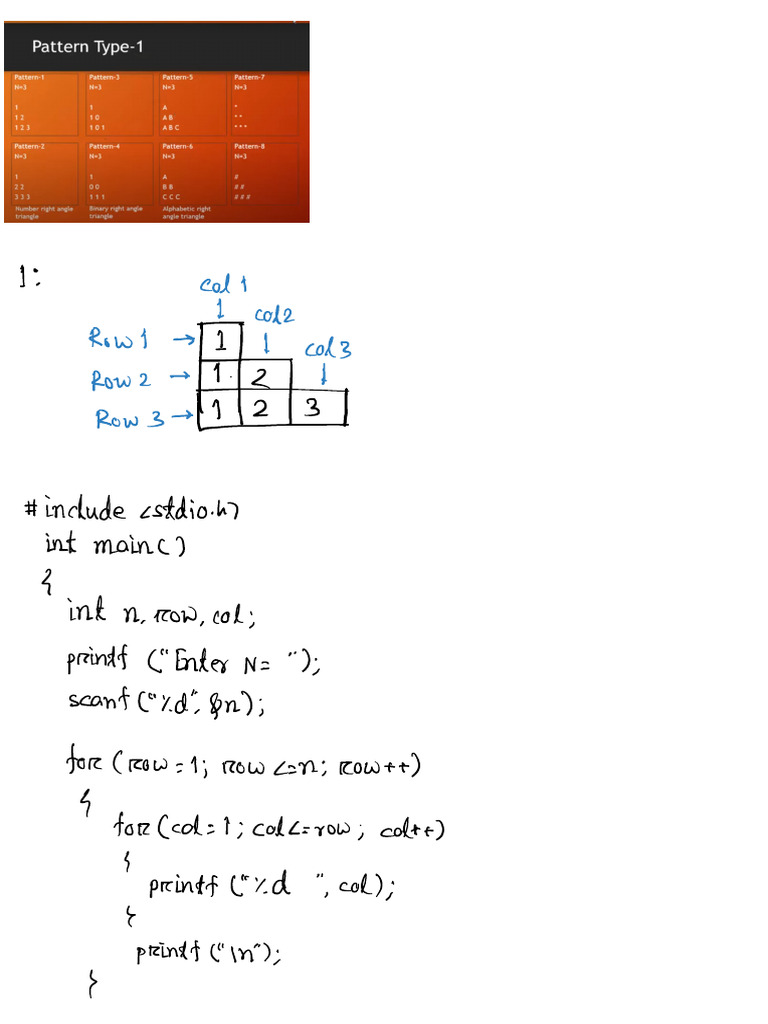 Pattern Type-1
Pattern-1 Pattern-3 Pattern-5 Pattern-7
N=3 N=3 N=3 N=3
1 1 A *
1 2 1 0 A B * *
1 2 3 1 0 1 A B C * * *
Pattern-2 Pattern-4 Pattern-6 Pattern-8
N=3 N=3 N=3 N=3
1 1 A #
2 2 0 0 B B # #
3 3 3 1 1 1 C C C # # #
Number right angle Binary right angle Alphabetic right
triangle triangle angle triangle
1:
col 1
col2
Row 1 → 1 col3
Row 2 → 1 2
Row 3 → 1 2 3
#include <stdio.h>
int main()
{
int n, row, col;
printf ("Enter N= ");
scanf ("%d", &n);
for (row=1; row <=n; row++)
{
for (col=1; col<=row; col++)
{
printf ("%d ", col);
}
printf ("\n");
}